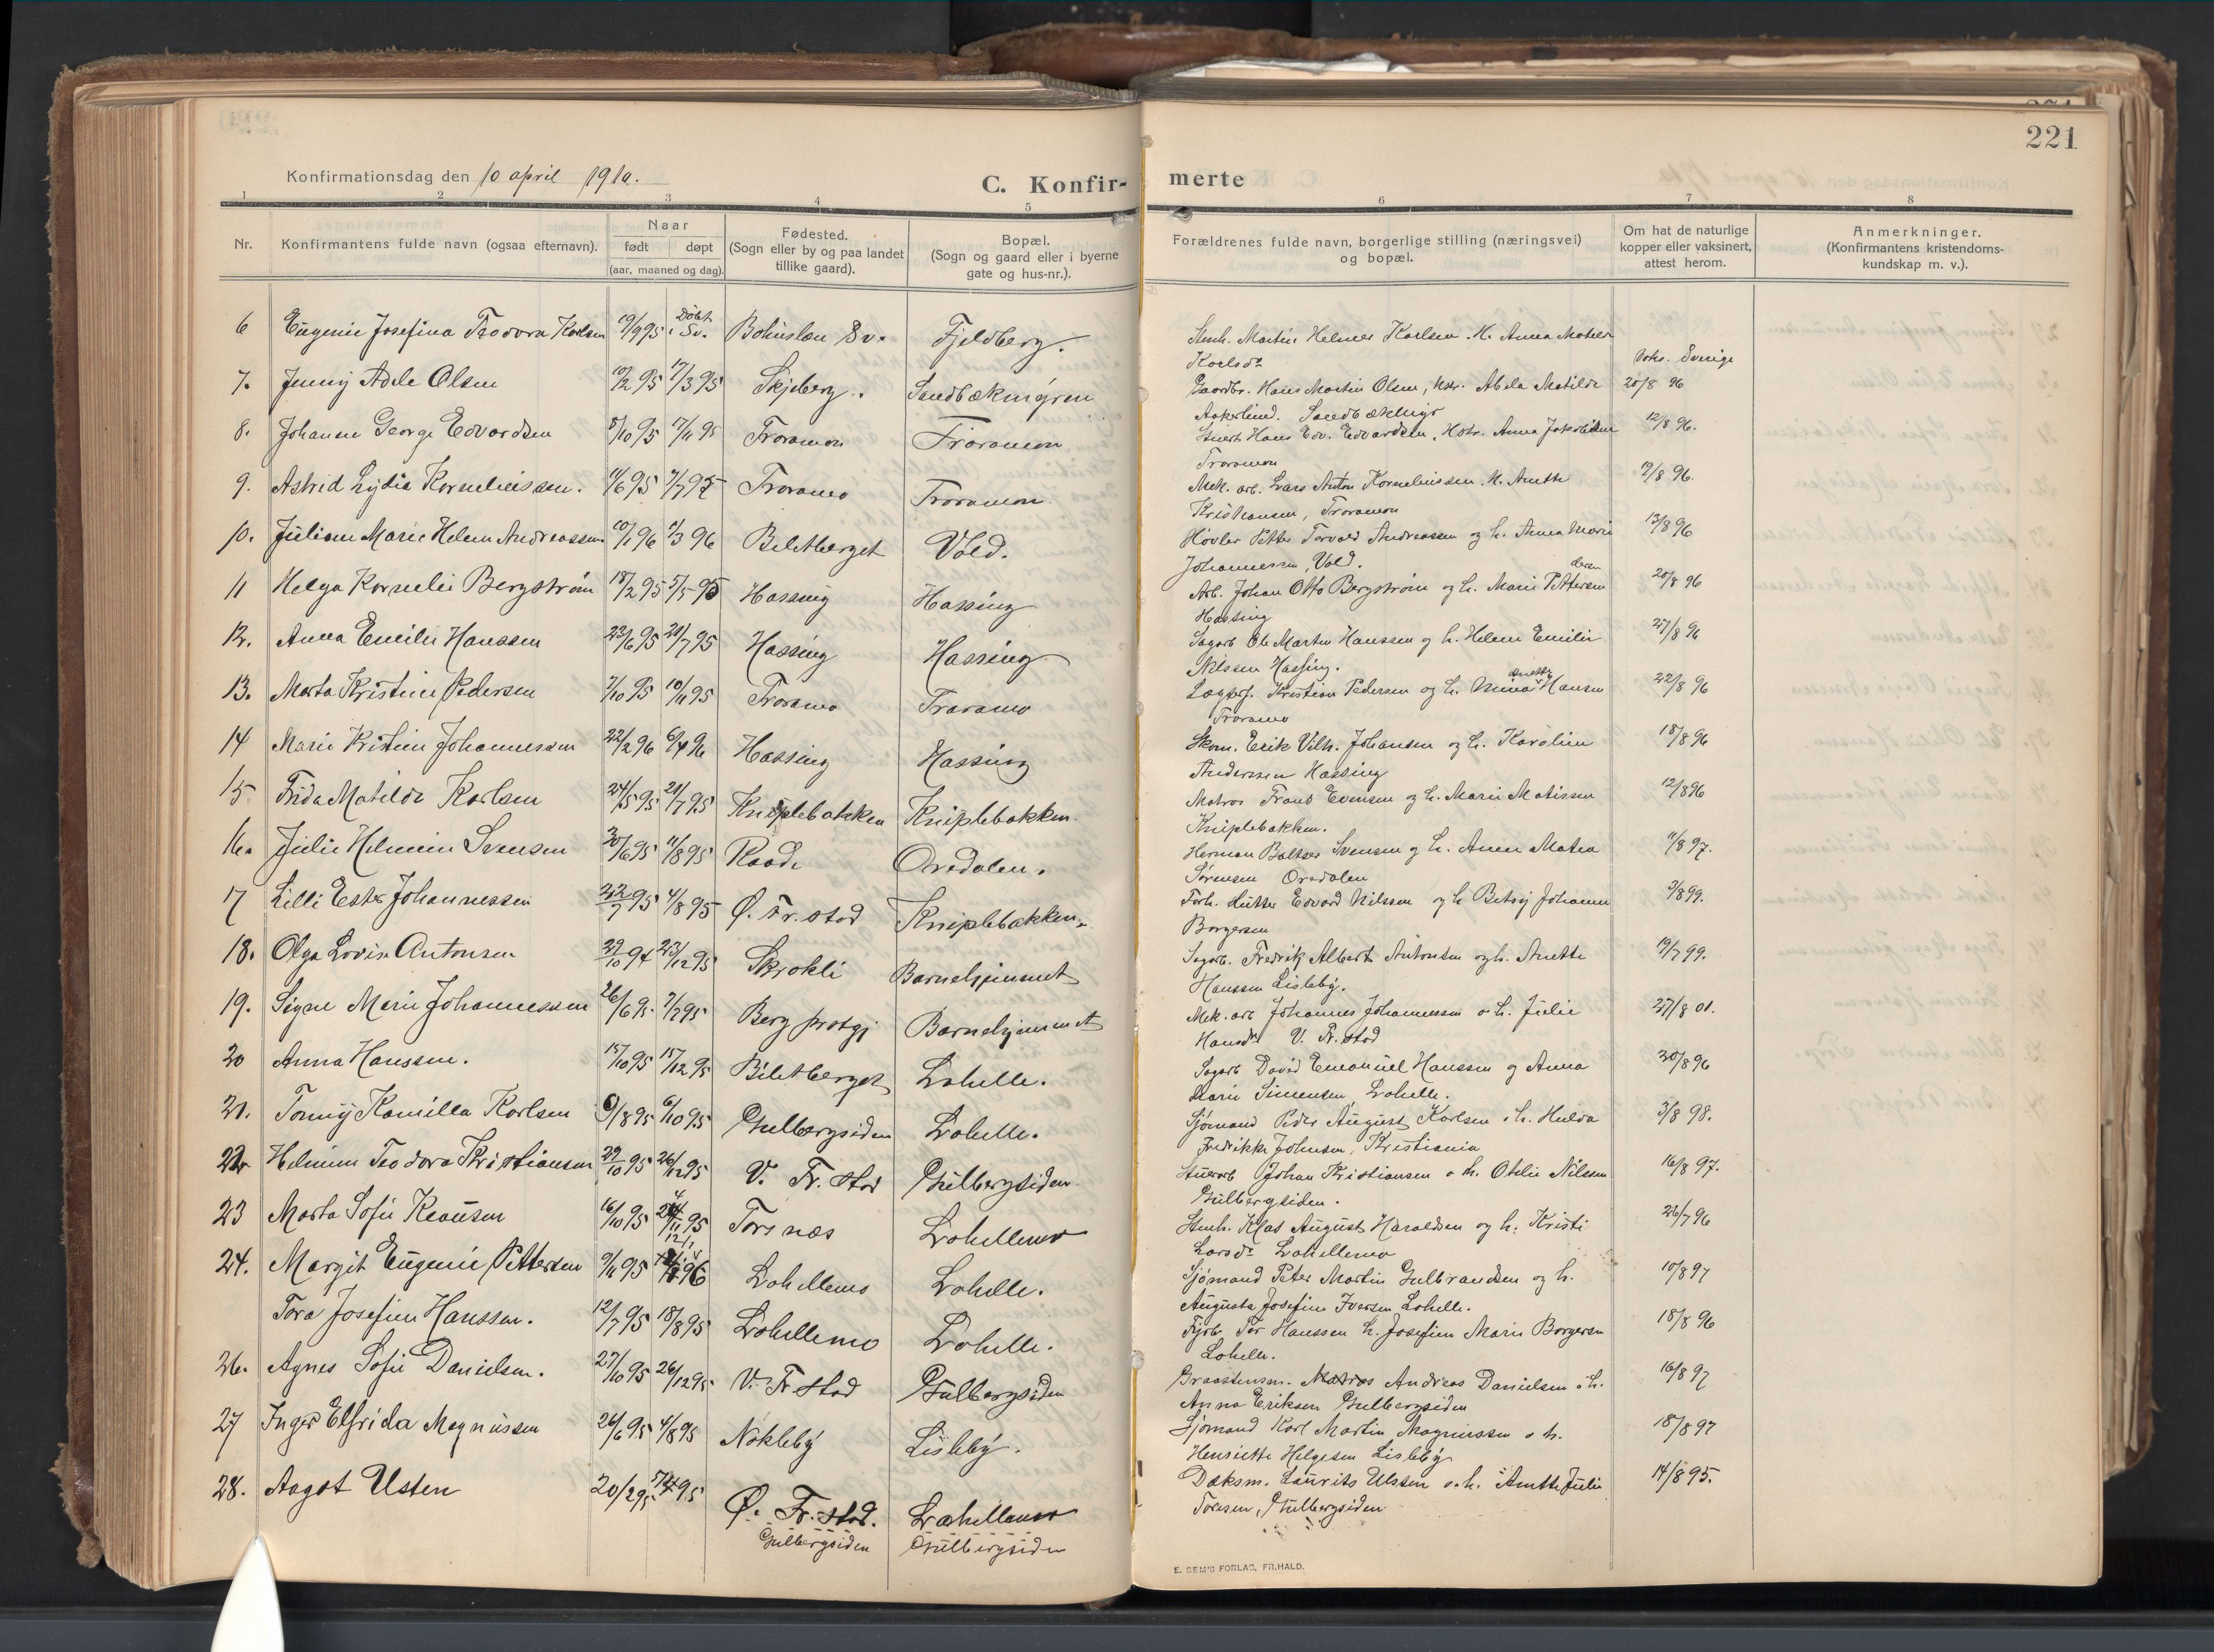 221
Konfirmationsdag den 10 april 1910.
C. Konfir-
merte
1 2 3 4 5 6 7 8
Nr.
Konfirmantens fulde navn (ogsaa efternavn).
Naar
født døpt
(aar, maaned og dag).
Fødested.
(Sogn eller by og paa landet
tillike gaard).
Bopæl.
(Sogn og gaard eller i byerne
gate og hus-nr.).
Forældrenes fulde navn, borgerlige stilling (næringsvei)
og bopæl.
Om hat de naturlige
kopper eller vaksinert,
attest herom.
Anmerkninger.
(Konfirmantens kristendoms-
kundskap m. v.).
6 Eugenie Josefina Teodora Karlsen 19/9 95 Døbt i Sv. Bohuslen Sv. Fjeldberg.
Stenh. Martin Helmer Karlsen. H. Anna Matilda
Karlsdr. Vaks. Sverige
7. Jenny Adele Olsen 10/2 95 17/3 95 Skjeberg. Sandbækmyren
Gaardbr. Hans Martin Olsen, Hstr. Abela Matilde 20/8 96
Aakerlind. Sandbækmyr
8. Johanne George Edvardsen 8/10 95 17/11 95 Traramoen Traramoen
Stuert Hans Edv. Edvardsen, Hstr. Anna Jakobsen 12/8 96.
Traramoen
9. Astrid Lydia Korneliussen. 11/6 95 7/7 95 Traramo Traramoen
Mek. arb. Lars Anton Korneliussen. H. Anette 19/8 96.
Kristiansen, Traramoen
10. Juliane Marie Helene Andreassen 10/1 96 1/3 96 Biletberget Vold.
Høvler Petter Torvald Andreassen og h. Anna Marie 13/8 96
Johannessen, Vold.
11 Helga Kornelie Bergstrøm 18/2 95 5/5 95 Hassing Hassing
Arb. Johan Otto Bergstrøm og h. Marie Pettersen 20/8 96
Hassing
12. Anna Emilie Hanssen 23/6 95 21/7 95 Hassing Hassing
Sagarb Ole Martin Hanssen og h. Helene Emilie 27/8 96
Nilssen Hassing.
13. Marta Kristine Pedersen 7/10 95 10/11 95 Traramo Traramo
Lægterf. Kristian Pedersen og h. Mina Anette Hansen 22/8 96
Traramo
14 Marie Kristine Johannessen 22/2 96 6/4 96 Hassing Hassing
Skom. Erik Vilh. Johansen og h. Karoline 18/8 96
Anderssen Hassing
15 Frida Matilde Karlsen 24/5 95 21/7 95 Kniplebakken Kniplebakken.
Matros Frants Evensen og h. Marie Matissen 12/8 96
Kniplebakken.
16. Julie Helmine Svensen 30/6 95 11/8 95 Raade Oredalen.
Herman Baltser Svensen og h. Anne Matea 11/8 97.
Sørensen Oredalen
17 Lilli Ester Johannessen 22/7 95 4/8 95 Ø. Fr. stad Kniplebakken.
Forh. Hutter Edvard Nilssen og h Betsy Johanne 3/8 99.
Borgersen
18. Olga Lovise Antonsen 29/10 94 23/12 95 Skrokli Barnehjemmet
Sagarb. Fredrik Albert Antonsen og h. Anette 19/7 99.
Hanssen Lisleby.
19. Signe Marie Johannessen 26/6 95. 7/7 95 Berg prstgj Barnehjemmet
Mek. arb Johannes Johannessen o h. Julie 27/8 01.
Hansdr V. Fr. stad
20 Anna Hanssen. 15/10 95 15/12 95 Biletberget Lahelle.
Sagarb David Emanuel Hanssen og Anna 30/8 96
Marie Simensen, Lahelle.
21. Tonny Kamilla Karlsen 9/8 95 6/10 95 Gulbergsiden Lahelle.
Sjømand Peder August Karlsen o h. Hulda 3/8 98.
Fredrikke Johnsen, Kristiania
22 Helmine Teodora Kristiansen 29/10 95 26/12 95 V. Fr. stad Gulbergsiden
Stuerarb Johan Kristiansen o h. Otelie Nilssen 16/8 97.
Gulbergsiden.
23 Marta Sofie Knausen 16/10 95 24/11 95 Torsnæs Lahellemo
Stenh. Klas August Haraldsen og h. Kristi 26/7 96
Larsdr Lahellemo
24. Margit Eugenie Pettersen 9/11 95 96 Lahellemo Lahelle.
Sjømand Peter Martin Gulbrandsen og h. 10/8 97
Augusta Josefine Iversen Lahelle.
Tora Josefine Hanssen. 12/7 95 18/8 95 Lahellemo Lahelle.
Fyrb. Tor Hanssen h. Josefine Marie Borgersen 18/8 96
Lahelle.
26. Agnes Sofie Danielsen. 27/10 95 26/12 95 V. Fr stad Gulbergsiden
Graastensm. Matros Andreas Danielsen o h. 16/8 97
Anna Eriksen Gulbergsiden
27 Inger Elfrida Magnussen 26/6 95 4/8 95 Nøkleby Lisleby.
Sjømand Karl Martin Magnussen o h. 18/8 97
Henriette Helgesen Lisleby
28. Aagot Ulsten 20/2 95 95 Ø. Fr. stad. Lahellemo
Gulbergsiden Gulbergsiden
Dæksm. Laurits Ulssen o. h. Anette Julie 14/8 95.
Toresen, Gulbergsiden
E. SEM'S FORLAG, FR.HALD.